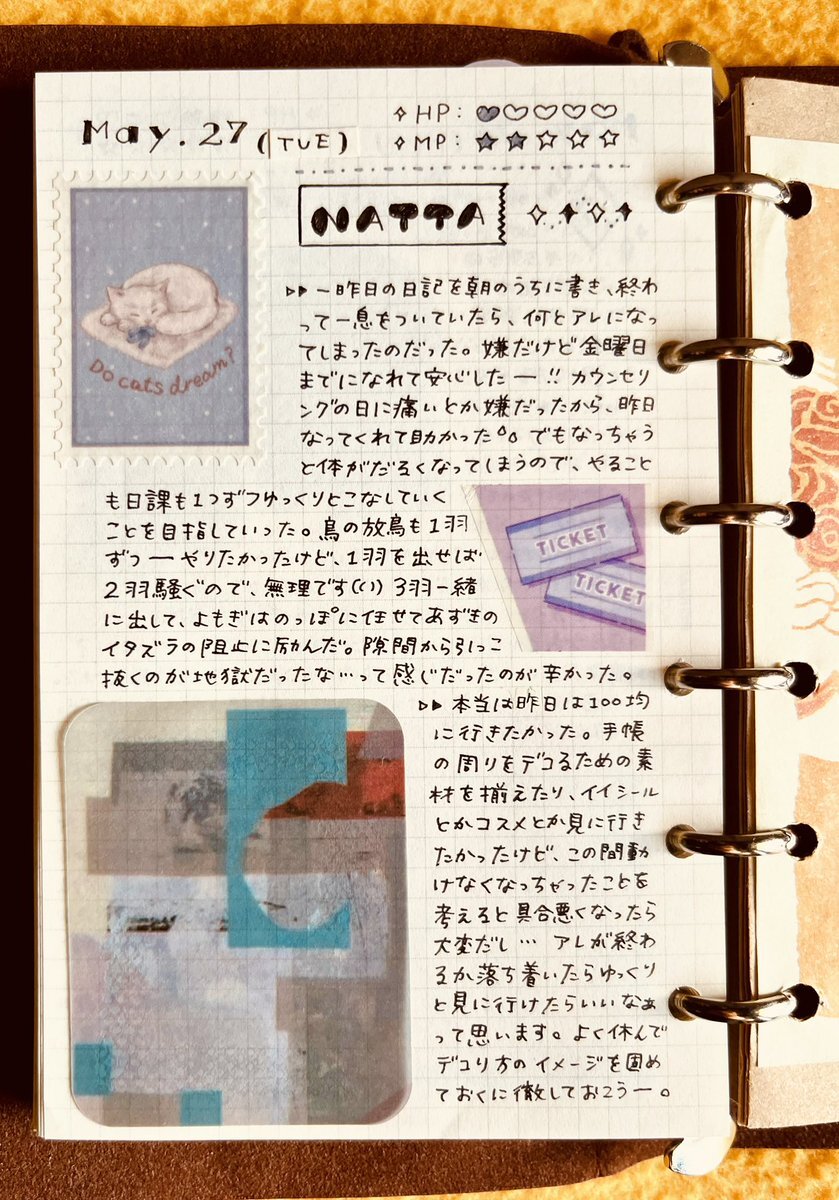 May. 27 (TUE)
✧ HP: ♥♡♡♡♡
✧ MP: ★★☆☆☆
NATTA
Do cats dream?
▷▶ 一昨日の日記を朝のうちに書き、終わ
って一息をついていたら、何とアレになっ
てしまったのだった。嫌だけど金曜日
までになれて安心したー!! カウンセリ
ングの日に痛いとか嫌だったから、昨日
なってくれて助かった。でもなっちゃう
と体がだるくなってしまうので、やること
も日課も1つずつゆっくりとこなしていく
ことを目指していった。鳥の放鳥も1羽
ずつーやりたかったけど、1羽を出せば
2羽騒ぐので、無理です(い) 3羽一緒
に出して、よもぎはのっぽに任せてあずきの
イタズラの阻止に励んだ。隙間から引っこ
抜くのが地獄だったな…って感じだったのが辛かった。
TICKET
TICKET
▷▶ 本当は昨日は100均
に行きたかった。手帳
の周りをデコるための素
材を揃えたり、イイシール
とかコスメとか見に行き
たかったけど、この間動
けなくなっちゃったことを
考えると具合悪くなったら
大変だし… アレが終わ
るか落ち着いたらゆっくり
と見に行けたらいいなぁ
って思います。よく休んで
デコり方のイメージを固め
ておくに徹しておこうー。